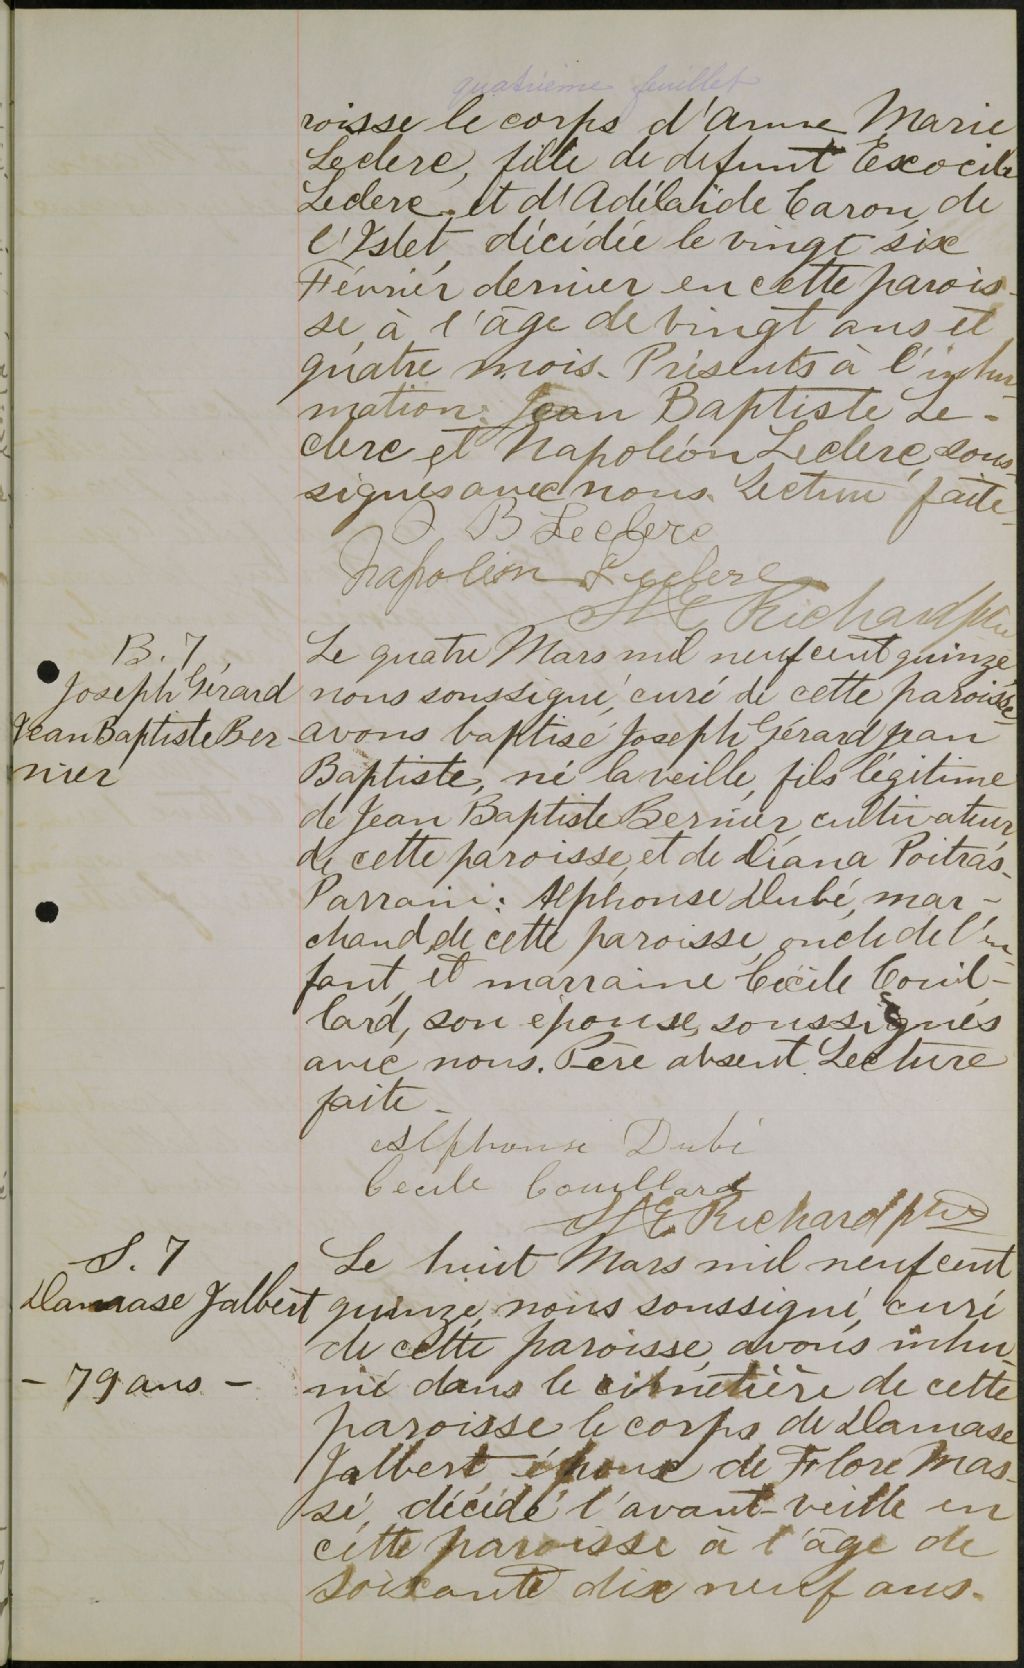 quatrième feuillet
roisse le corps d'Anne Marie
Leclerc, fille de défunt
Leclerc et d'Adélaïde Caron, de
l'Islet, décédée le vingt six
Février dernier en cette parois-
se, à l'âge de vingt ans et
quatre mois. Présents à l'inhu-
mation: Jean Baptiste Le-
clerc et Napoléon Leclerc, sous-
signés avec nous. Lecture faite.
J B Leclerc
Napoléon Leclerc
Richard ptre
B. 7
Joseph Gérard
Jean Baptiste Ber-
nier
Le quatre Mars mil neuf cent quinze,
nous soussigné, curé de cette paroisse
avons baptisé Joseph Gérard Jean
Baptiste, né la veille, fils légitime
de Jean Baptiste Bernier, cultivateur
de cette paroisse, et de Diana Poitras-
Parrain: Alphonse Dubé, mar-
chand de cette paroisse, oncle de l'en-
fant, et marraine Cécile Couil-
lard, son épouse, soussignés
avec nous. Père absent. Lecture
faite-
Alphonse Dubé
Cecile Couillard
Richard ptre
S. 7
Damase Jalbert
- 79 ans -
Le huit Mars mil neuf cent
quinze, nous soussigné, curé
de cette paroisse, avons inhu-
mé dans le cimetière de cette
paroisse le corps de Damase
Jalbert, époux de Flore Mas-
sé, décédé l'avant-veille en
cette paroisse à l'âge de
soixante dix neuf ans.